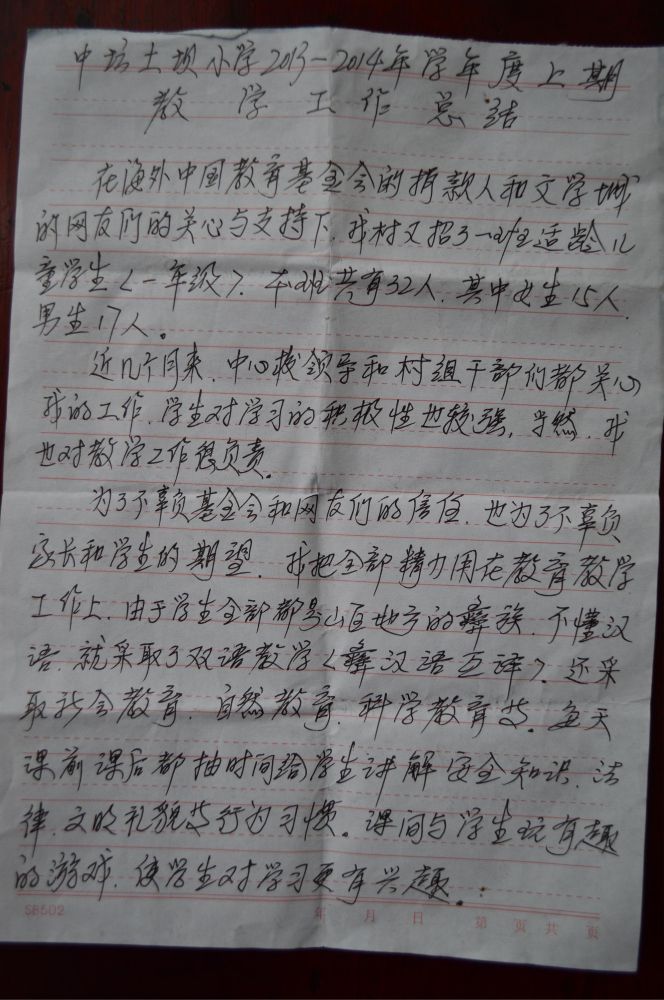 中坛土坝小学2013-2014年学年度上期
教学工作总结
在海外中国教育基金会的捐款人和文学城
的网友们的关心与支持下,我村又招了一班适龄儿
童学生(一年级)。本班共有32人,其中女生15人,
男生17人。
近几个月来,中心校领导和村组干部们都关心
我的工作,学生对学习的积极性也较强,当然,我
也对教学工作很负责。
为了不辜负基金会和网友们的信任,也为了不辜负
家长和学生的期望,我把全部精力用在教育教学
工作上,由于学生全部都是山区地方的彝族,不懂汉
语,就采取了双语教学(彝汉语互译)。还采
取社会教育,自然教育,科学教育等。每天
课前课后都抽时间给学生讲解安全知识,法
律,文明礼貌等行为习惯。课间与学生玩有趣
的游戏,使学生对学习更有兴趣。
SB502 年 月 日 第 页 共 页